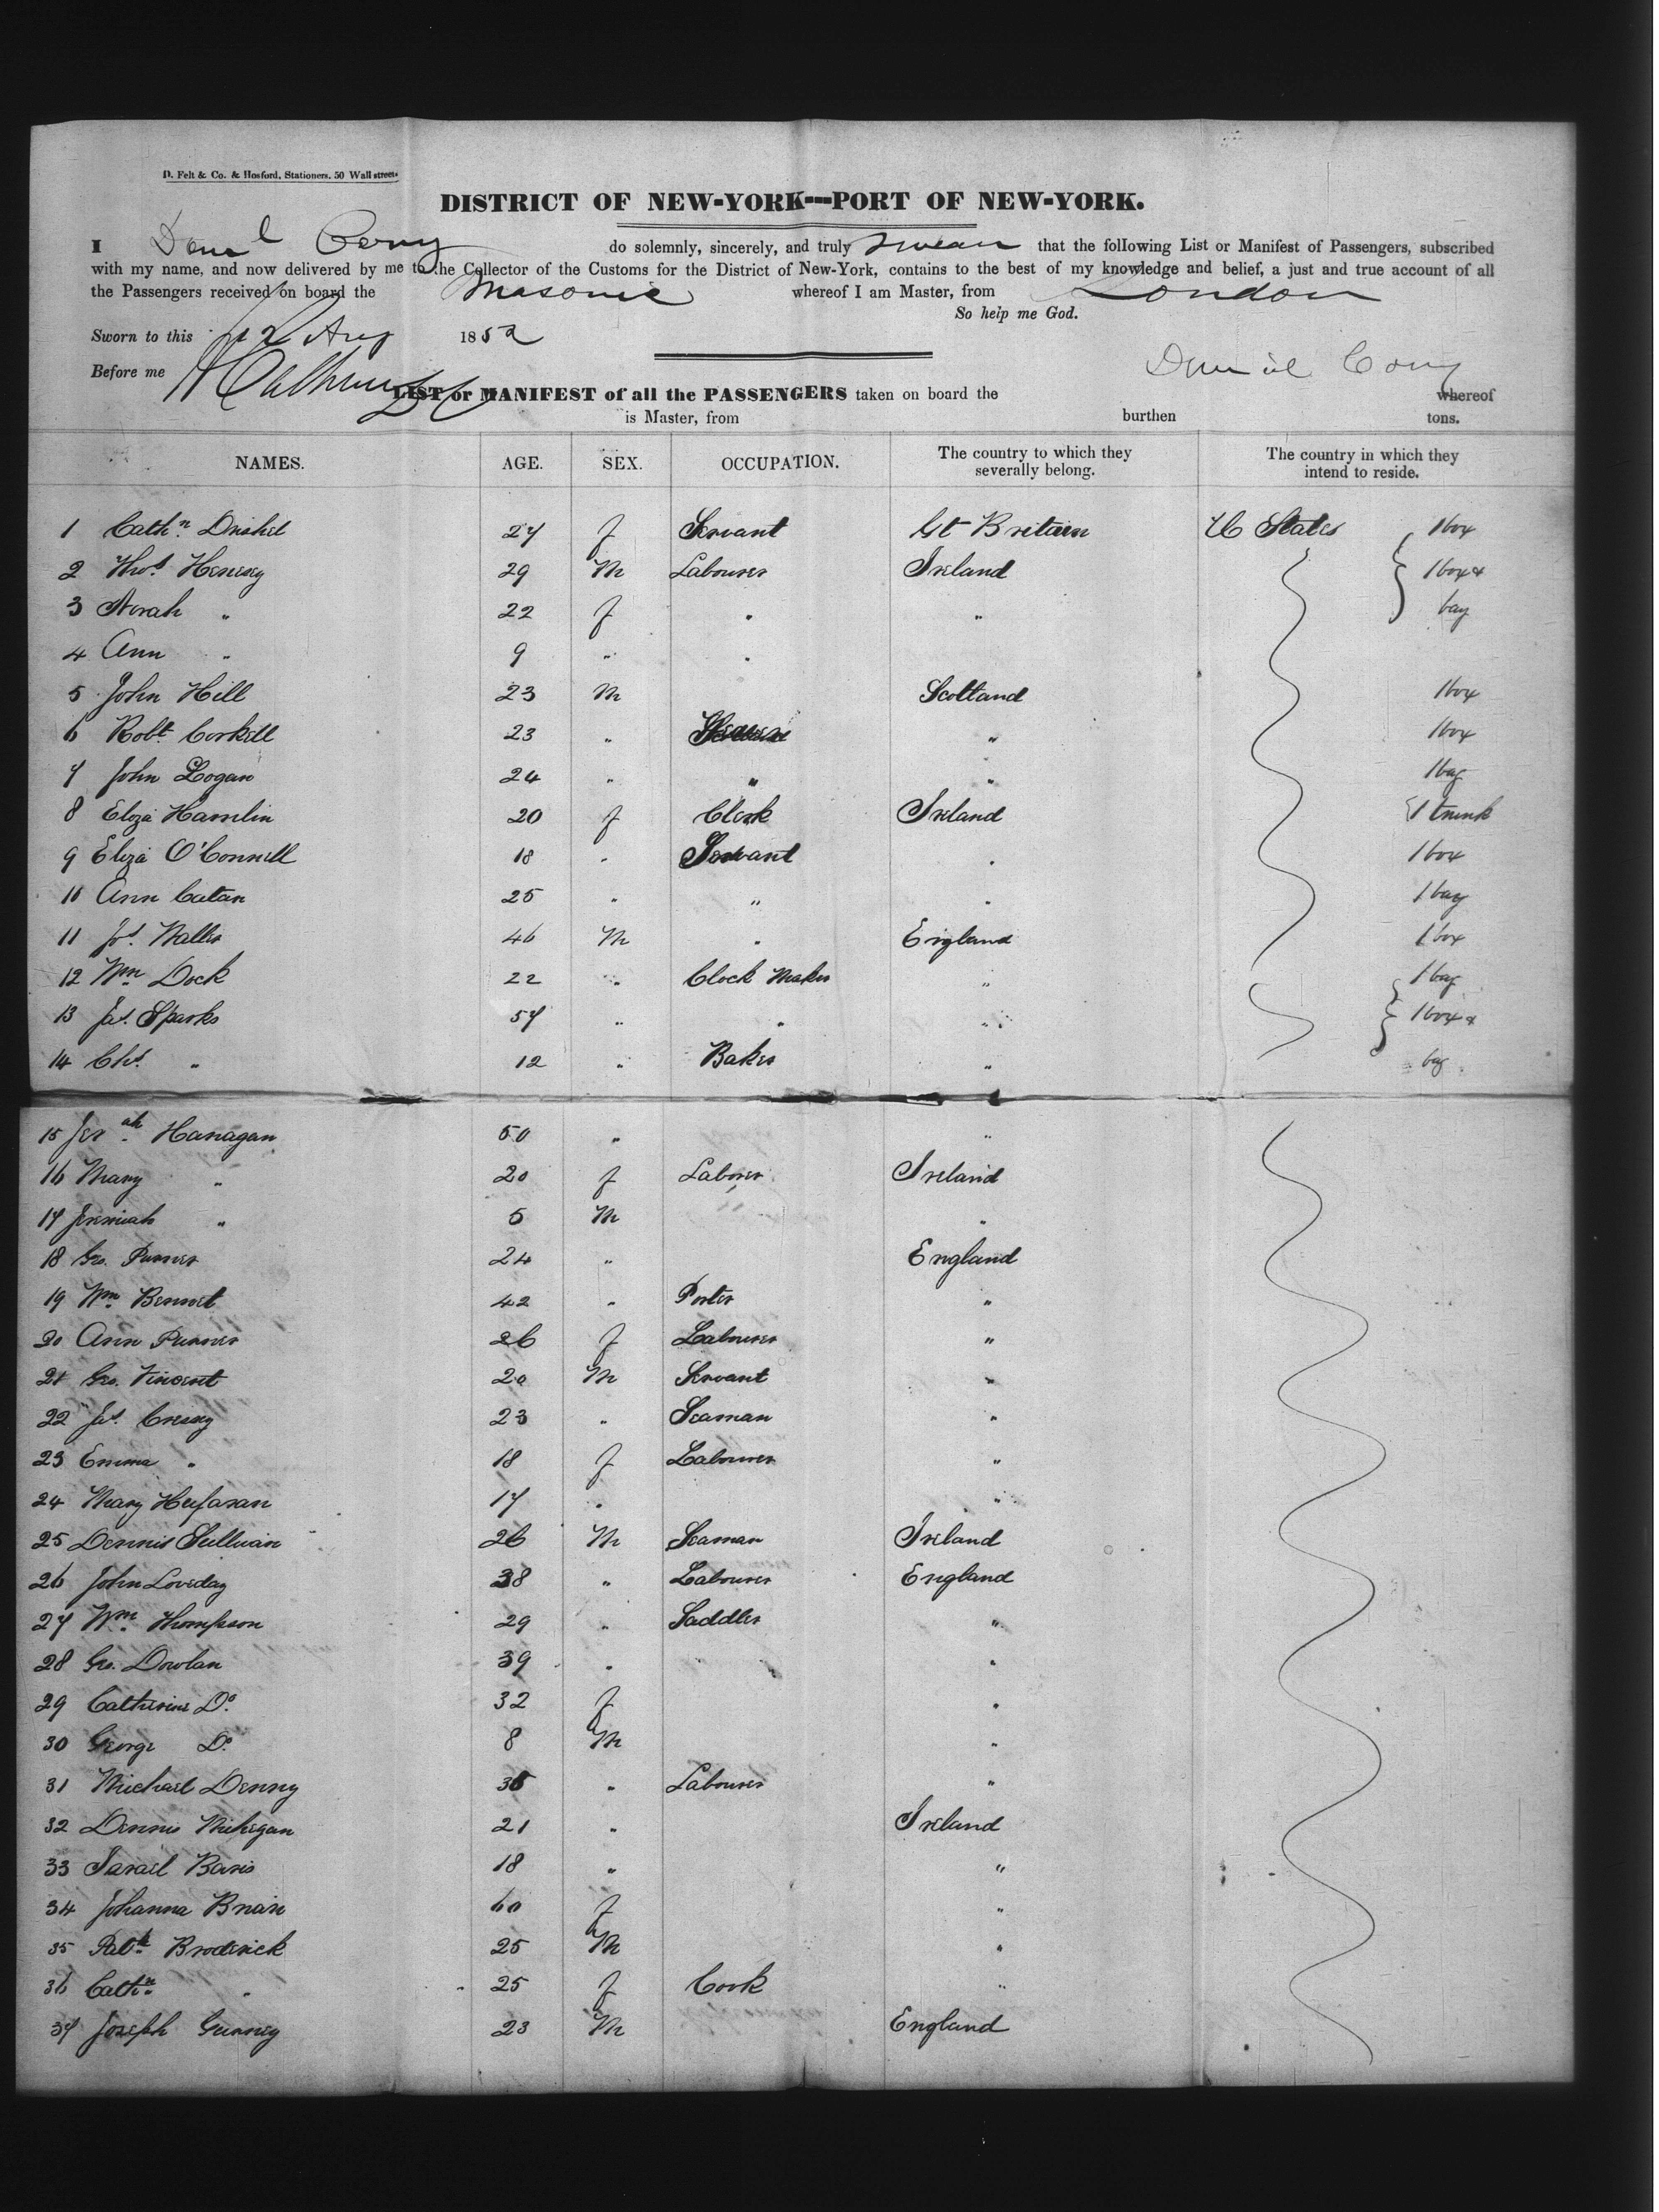 D. Felt & Co. & Hosford, Stationers, 50 Wall street.
DISTRICT OF NEW-YORK---PORT OF NEW-YORK.
I do solemnly, sincerely, and truly swear that the following List or Manifest of Passengers, subscribed
with my name, and now delivered by me to the Collector of the Customs for the District of New-York, contains to the best of my knowledge and belief, a just and true account of all
the Passengers received on board the Masonic whereof I am Master, from London
So help me God.
Sworn to this 12 Aug 1852
Before me
LIST or MANIFEST of all the PASSENGERS taken on board the whereof
is Master, from burthen tons.
NAMES. AGE. SEX. OCCUPATION. The country to which they severally belong. The country in which they intend to reside.
1 Cathn. 27 f Servant Gt Britain U States 1 box
2 Thos. Henesey 29 M Labourer Ireland 1 box &
3 Norah " 22 f " " bag
4 Ann " 9 " "
5 John Hill 23 M Scotland 1 box
6 Robt. Corkell 23 " " 1 box
7 John Logan 24 " " " 1 bag
8 Eliza Hamlin 20 f Clerk Ireland 1 trunk
9 Eliza O'Connell 18 " Servant " 1 box
10 Ann Catan 25 " " " 1 bag
11 Jos. Waller 46 M " England 1 box
12 Wm. Dock 22 " Clock Maker " 1 bag
13 Jas. Sparks 57 " " " 1 box &
14 Chs. " 12 " Baker " bag
15 Jerah. Hanagan 50 " "
16 Mary " 20 f Laborer Ireland
17 Jeremiah " 5 M "
18 Geo. Purner 24 " England
19 Wm. Bennet 42 " Porter "
20 Ann Purner 26 f Labourer "
21 Geo. Vincent 20 M Servant "
22 Jas. Cressy 23 " Seaman "
23 Emma " 18 f Labourer "
24 Mary 17 " "
25 Dennis Sullivan 26 M Seaman Ireland
26 John Loveday 38 " Labourer England
27 Wm. Thompson 29 " Saddler "
28 Geo. Dowlan 39 " "
29 Catherine Do. 32 f "
30 George Do. 8 M "
31 Michael Denny 35 " Labourer "
32 Dennis Mihegan 21 " Ireland
33 18 " "
34 Johanna Brian 60 f "
35 Patk. Broderick 25 M "
36 Cathn. " 25 f Cook "
37 Joseph Gurney 23 M England